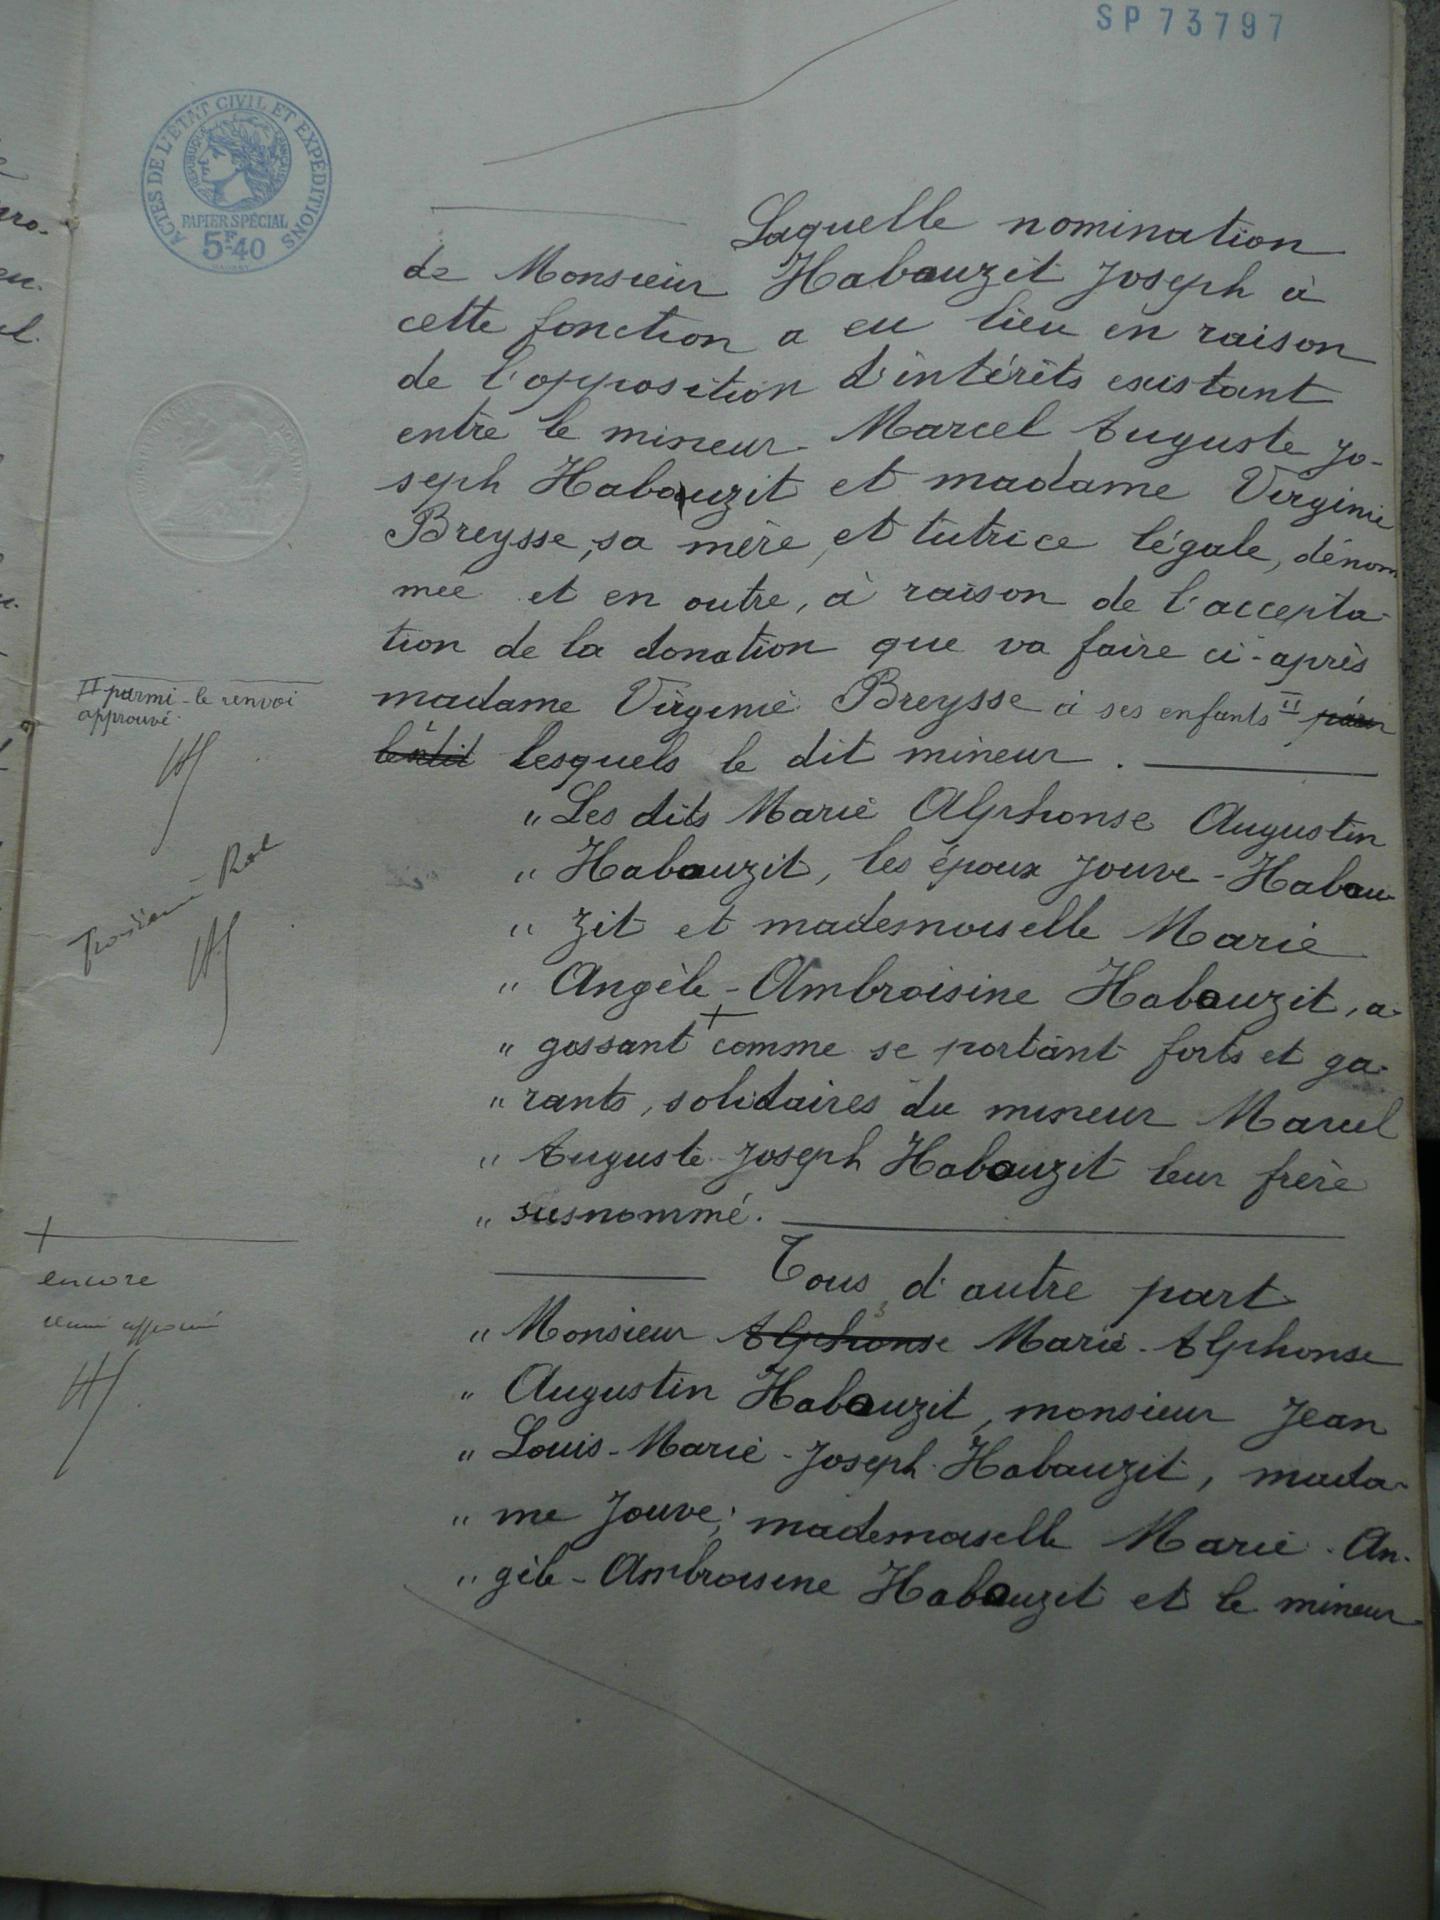 SP 73797
ACTES DE L'ÉTAT CIVIL ET EXPÉDITIONS
RÉPUBLIQUE FRANÇAISE
PAPIER SPÉCIAL
5F.40
Laquelle nomination
de Monsieur Habauzit Joseph à
cette fonction a eu lieu en raison
de l'opposition d'intérêts existant
entre le mineur Marcel Auguste Jo-
seph Habauzit et madame Virginie
Breysse, sa mère, et tutrice légale, dénom
mée et en outre, à raison de l'accepta-
tion de la donation que va faire ci-après
madame Virginie Breysse à ses enfants II
lesquels le dit mineur.
" Les dits Marie Alphonse Augustin
" Habauzit, les époux Jouve-Habau-
" zit et mademoiselle Marie
" Angèle-Ambroisine Habauzit, a-
" gissant + comme se portant forts et ga-
" rants, solidaires du mineur Marcel
" Auguste Joseph Habauzit leur frère
" susnommé.
Tous d'autre part
" Monsieur Alphonse Marie-Alphonse
" Augustin Habauzit, monsieur Jean
" Louis-Marie-Joseph Habauzit, mada-
" me Jouve, mademoiselle Marie-An-
" gèle-Ambroisine Habauzit et le mineur
II parmi-le renvoi
approuvé
Troisième Rôle
+
encore